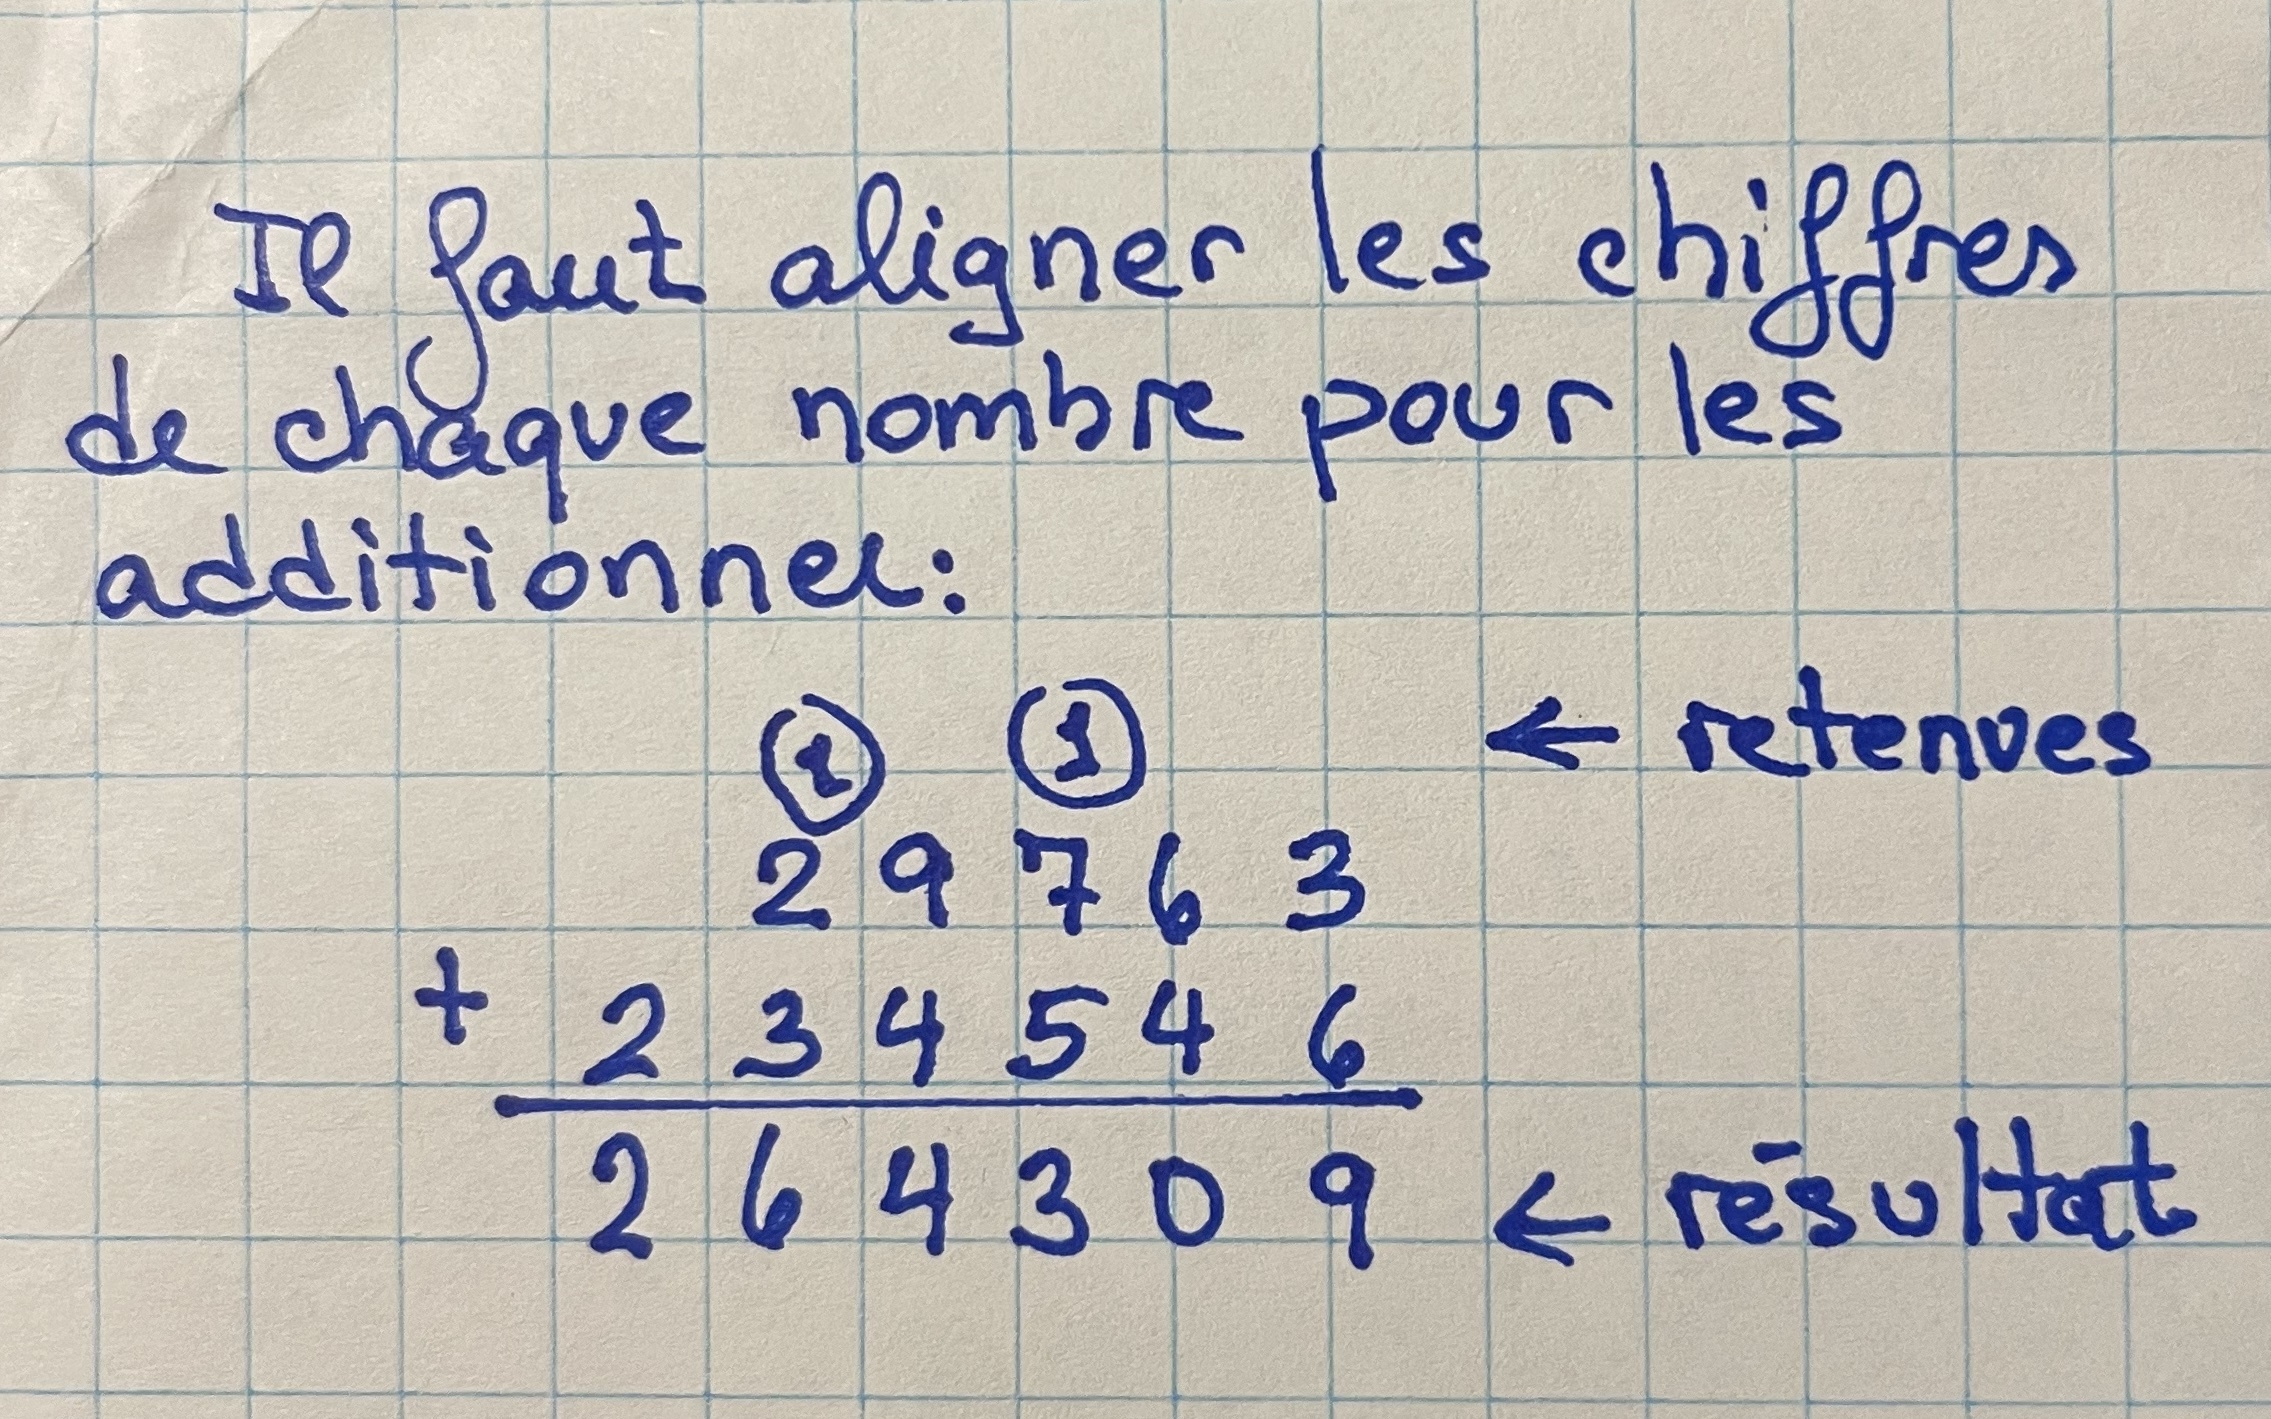 Il faut aligner les chiffres
de chaque nombre pour les
additionner:
1 1 ← retenues
2 9 7 6 3
+ 2 3 4 5 4 6
2 6 4 3 0 9 ← résultat